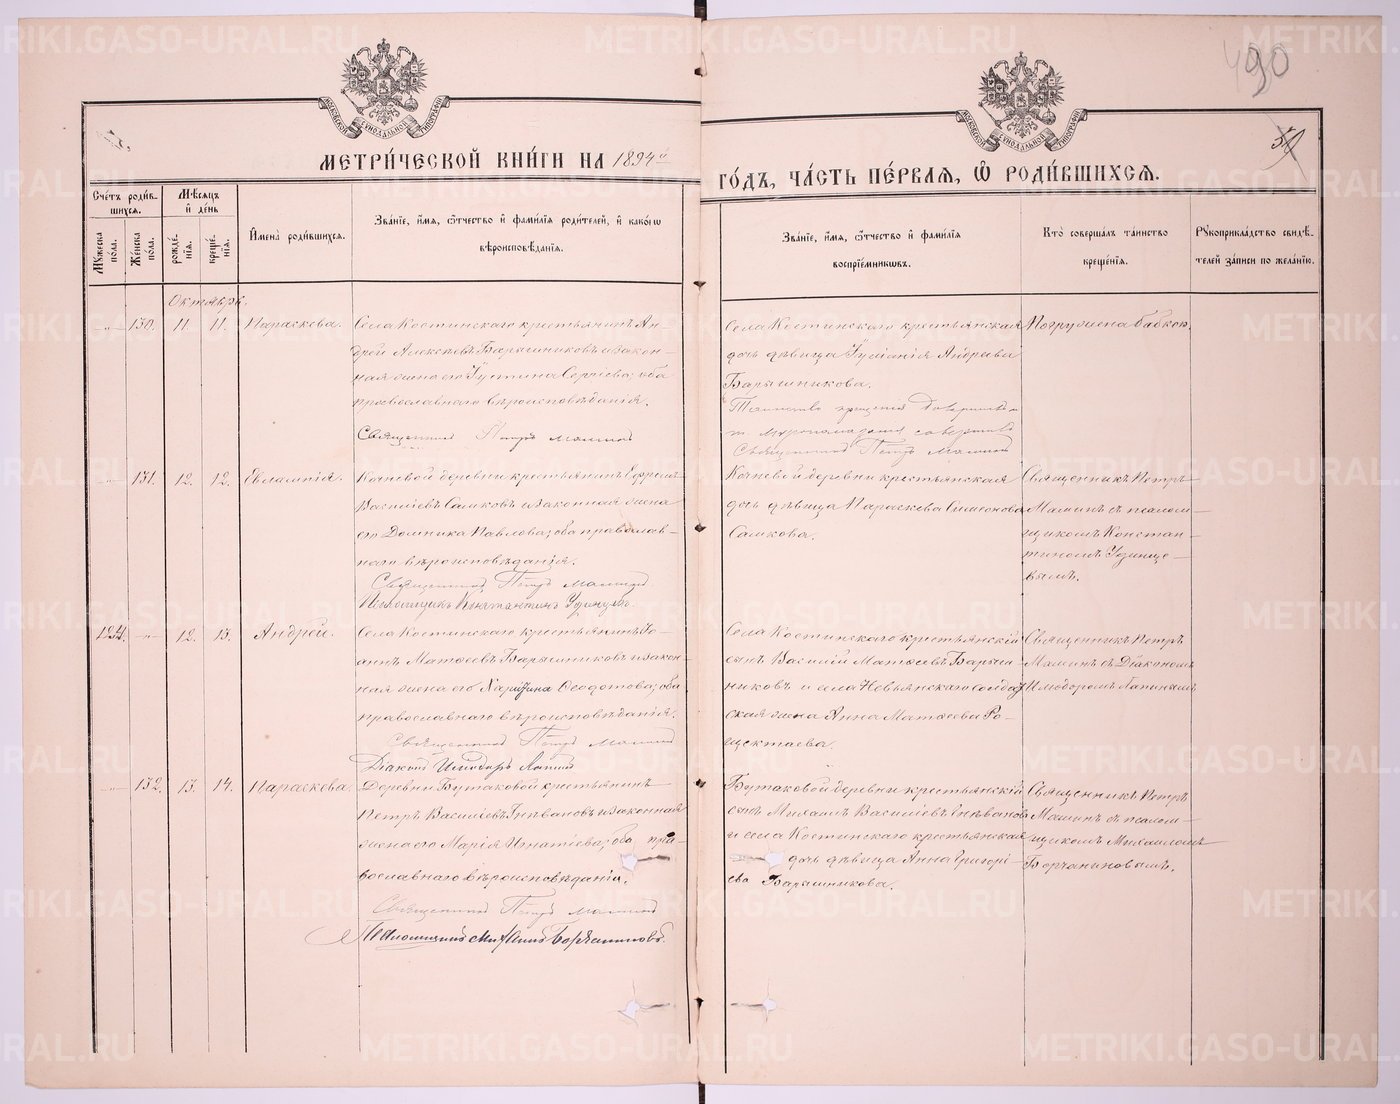 490
50
МЕТРИ́ЧЕСКОЙ КНИ́ГИ НА 1894й
ГО́ДЪ, ЧА́СТЬ ПЕ́РВАЯ, Ѡ РОДИ́ВШИХСЯ.
Сче́тъ роди́вшихся.
Му́жеска по́ла.
Же́нска по́ла.
Мѣ́сяцъ и де́нь
рожде́нія.
креще́нія.
Имена̀ роди́вшихся.
Зва́ніе, и́мя, ѻ́тчество и фами́лія роди́телей, и како́гѡ
вѣроисповѣ́данія.
Зва́ніе, и́мя, ѻ́тчество и фами́лія
воспріе́мниковъ.
Кто̀ соверша́лъ та́инство
креще́нія.
Рукоприкла́дство свидѣ́-
телей за́писи по жела́нію.
Октябрь.
130. 11. 11. Параскева.
Села Костинскаго крестьянинъ Ан-
дрей Алексѣевъ Барышниковъ и закон-
ная жена его Іустина Сергіева; оба
православнаго вѣроисповѣданія.
Священникъ Петръ Маминъ
Села Костинскаго крестьянская
дочь дѣвица Іуліанія Андреева
Барышникова.
Таинство крещенія
совершилъ
Священникъ Петръ Маминъ
Погружена бабкою.
131. 12. 12. Евлампія.
Кочневой деревни крестьянинъ Ефремъ
Василіевъ Самковъ и законная жена
его Домника Павлова; оба православ-
наго вѣроисповѣданія.
Священникъ Петръ Маминъ
Псаломщикъ Константинъ Удинцевъ.
Кочневой деревни крестьянская
дочь дѣвица Параскева Симеонова
Самкова.
Священникъ Петръ
Маминъ съ псалом-
щикомъ Констан-
тиномъ Удинце-
вымъ.
124. -"- 12. 13. Андрей.
Села Костинскаго крестьянинъ Іо-
аннъ Матѳеевъ Барышниковъ и закон-
ная жена его Харитина Ѳеодотова; оба
православнаго вѣроисповѣданія.
Священникъ Петръ Маминъ
Діаконъ Иліодоръ Лапинъ
Села Костинскаго крестьянскій
сынъ Василій Матѳеевъ Барыш-
никовъ и села Невьянскаго солдат-
ская жена Анна Матѳеева Ро-
щектаева.
Священникъ Петръ
Маминъ съ Діакономъ
Иліодоромъ Лапинымъ
132. 13. 14. Параскева.
Деревни Бутаковой крестьянинъ
Петръ Василіевъ Гнѣвановъ и законная
жена его Марія Игнатіева; оба пра-
вославнаго вѣроисповѣданія.
Священникъ Петръ Маминъ
Псаломщикъ Михаилъ Борчаниновъ.
Бутаковой деревни крестьянскій
сынъ Михаилъ Василіевъ Гнѣвановъ
и села Костинскаго крестьянская
дочь дѣвица Анна Григорі-
ева Барышникова.
Священникъ Петръ
Маминъ съ псалом-
щикомъ Михаиломъ
Борчаниновымъ.